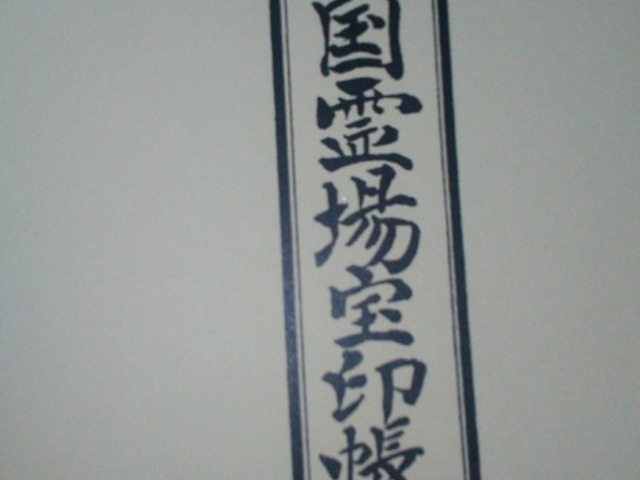 国霊場宝印帳